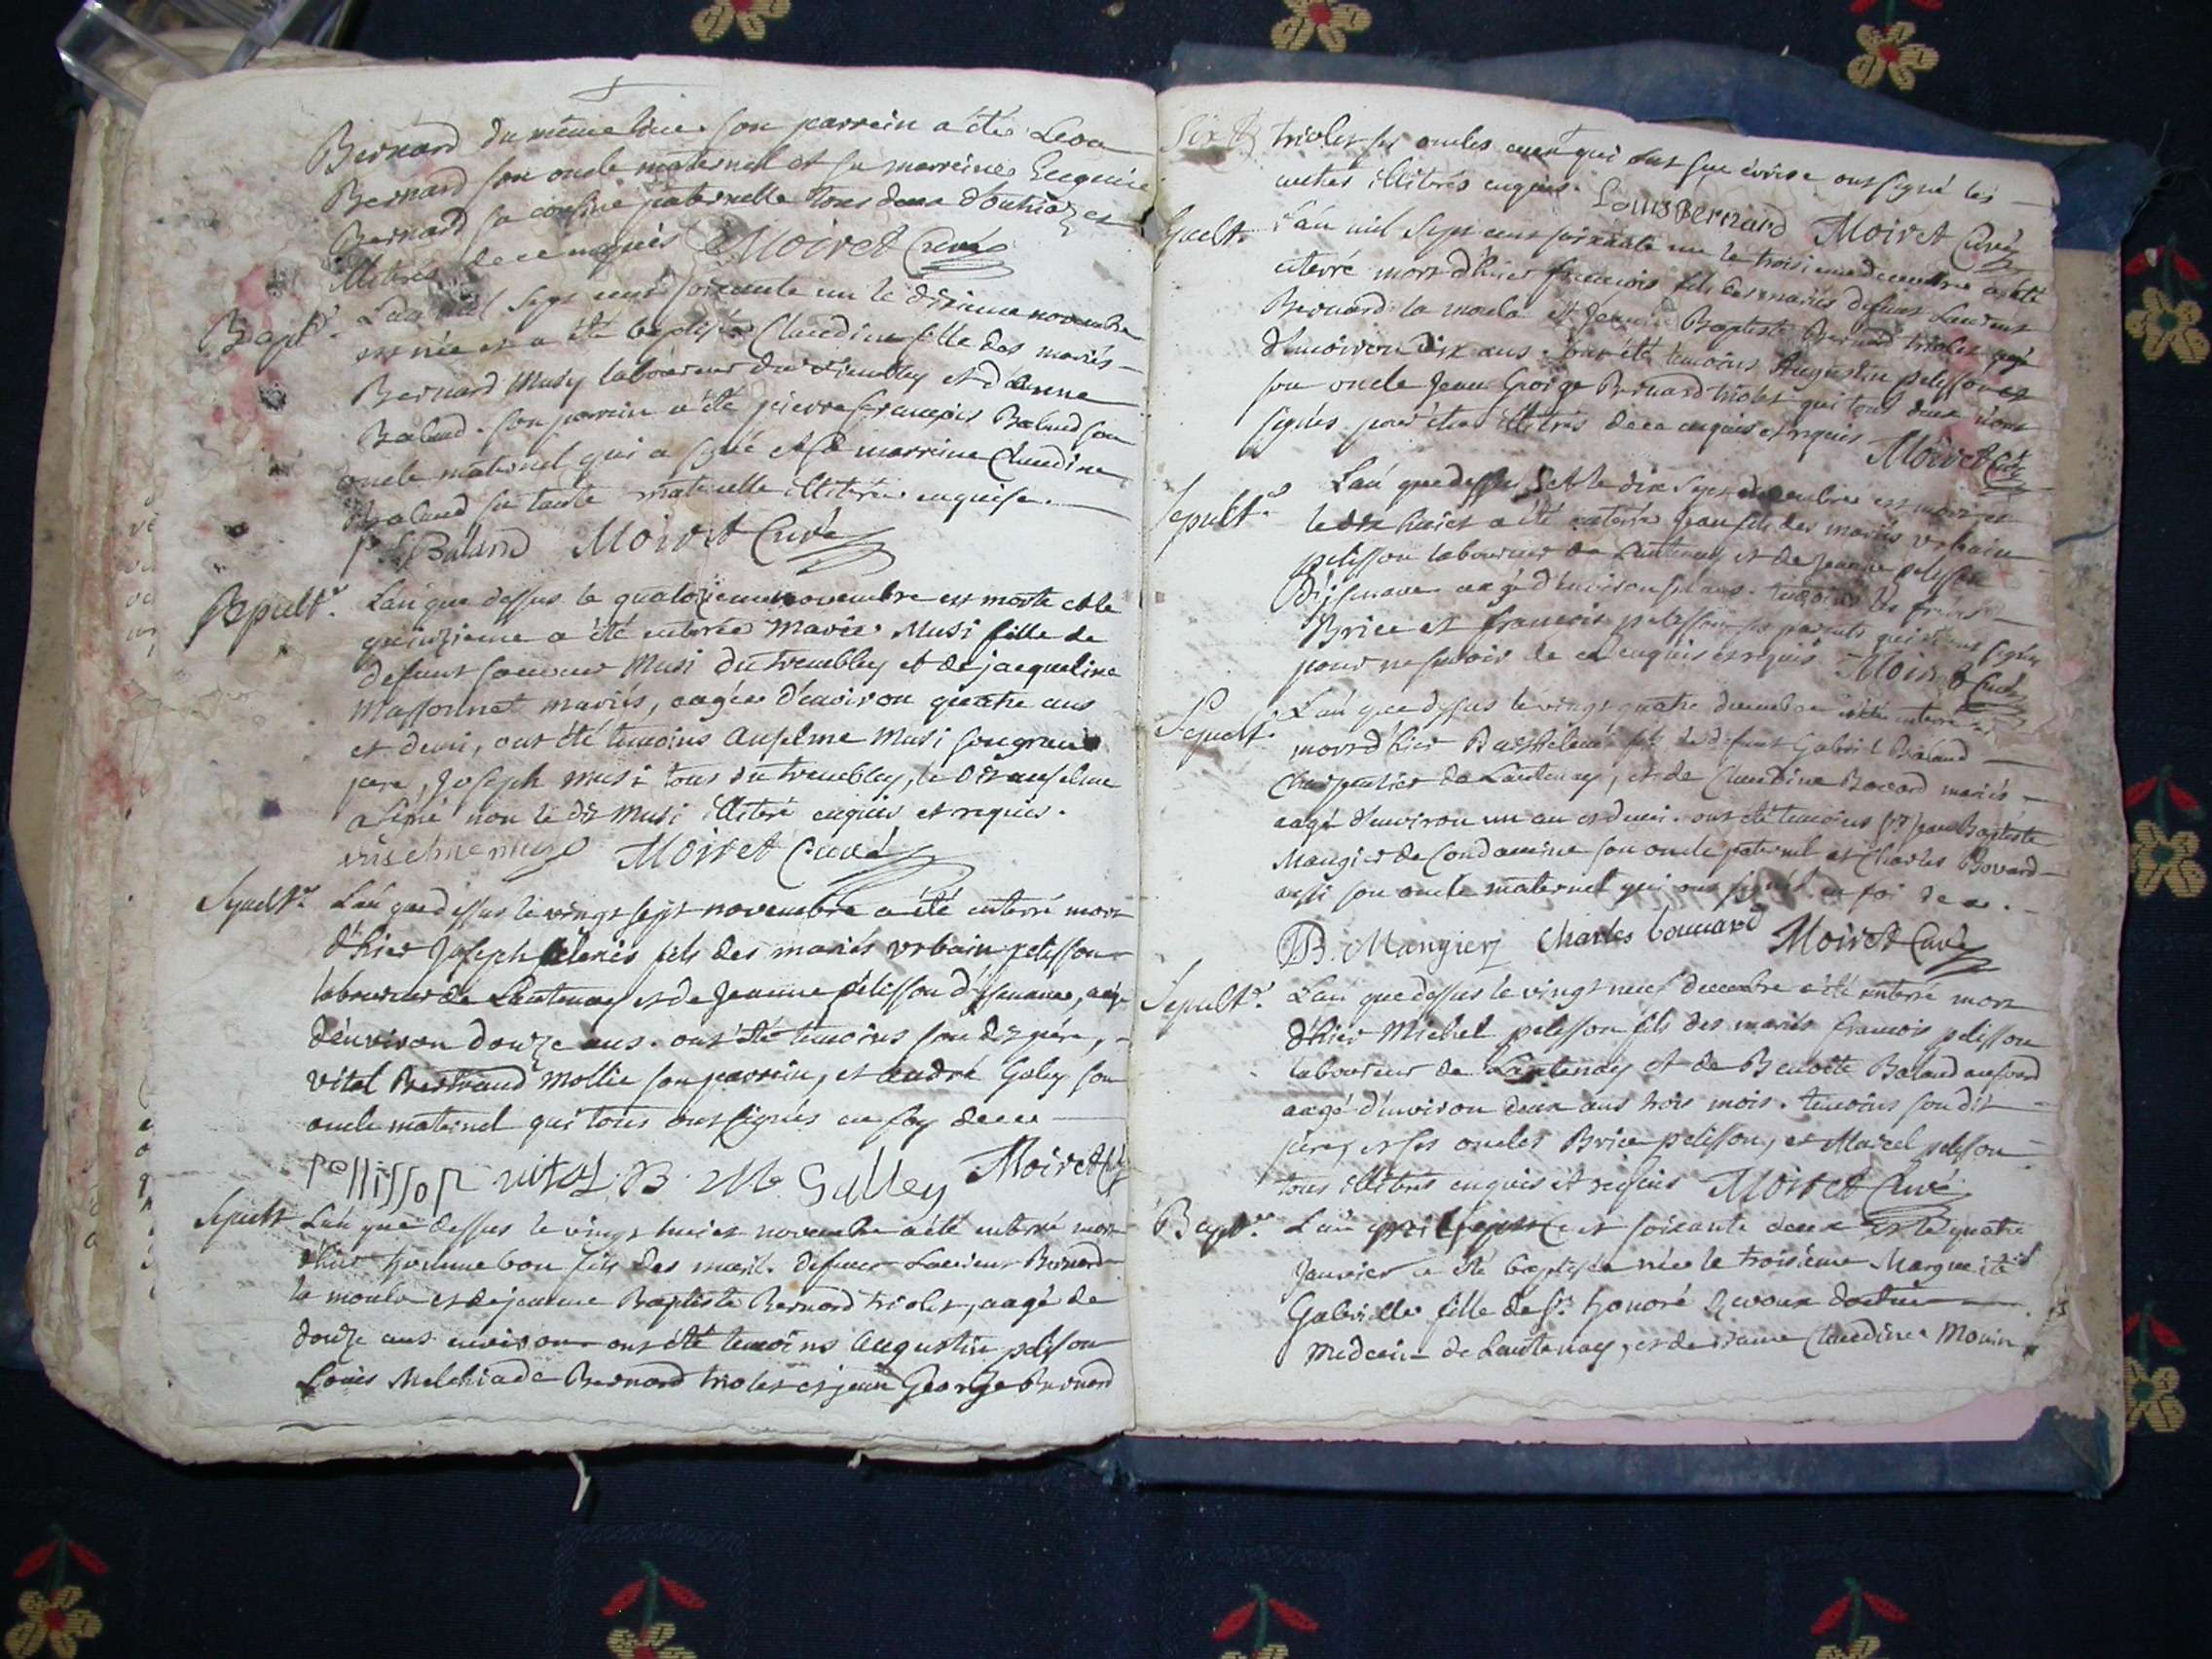 Bernard du même lieu. son parrein a été Leon
Bernard son oncle maternel et sa marreine
Bernard sa cousine paternelle tous deux d'outriaz et
illitérés de ce enquis Moiret Curé
Bapt.e L'an mil sept cent soixante un le dixieme novembre
est née et a été baptisée Claudine fille des mariés
Bernard Musy laboureur du Tremblay et d'anne
Balaud. son parrain a été pierre françois Balaud son
oncle maternel qui a signé et sa marreine Claudine
Balaud sa tante maternelle illitérée enquise.
p. f. Balaud Moiret Curé
Sepult.e L'an que dessus le quatorzieme novembre est morte et le
quinzieme a été enterrée Marie Musi fille de
defunt Musi du tremblay et de jacqueline
Massonnet mariés, aagée d'environ quatre ans
et demi, ont été temoins anselme Musi son grand
pere, Joseph Musi tous du tremblay, le dit anselme
a signé non le dit Musi illitéré enquis et requis.
anselme Moiret Curé
Sepult.e L'an que dessus le vingt sept novembre a été enterré mort
d'hier Joseph fils des mariés urbain pelisson
laboureur de Lantenay et de Jeanne pélisson d'issenave, aagé
d'environ douze ans. ont été temoins son dit pére,
vital Bertrand Mollie son parrein, et andré Galey son
oncle maternel qui tous ont signés en foy de ce
pellisson vital B. M. Galley Moiret Curé
Sepult L'an que dessus le vingt huict novembre a été enterré mort
d'hier homme bon fils des mariés defunct Laurent Bernard
la moula et de jeanne Baptiste Bernard triolet, aagé de
douze ans environ ont été temoins augustin pelisson
Louis Melchiade Bernard triolet et jean George Bernard
triolet ses oncles ceux qui ont sçu écrire ont signé les
autres illitérés enquis. Louis Bernard Moiret Curé
Sepult. L'an mil sept cent soixante un le troisieme decembre a été
enterré mort d'hier françois fils des mariés defunt Laurent
Bernard la moula et Jeanne Baptiste Bernard triolet aagé
d'environ dix ans. ont été temoins Augustin pelisson et
son oncle Jean George Bernard triolet qui tous deux n'ont
signés pour être illitérés de ce enquis et requis Moiret Curé
Sepult.e L'an que dessus et le dix sept decembre est mort et
le dix huict a été enterré Jean fils des mariés urbain
pelisson laboureur de Lantenay et de Jeanne pelisson
d'issenave aagé d'environ six ans. temoins les freres
Brice et françois pelisson ses parents qui n'ont signés
pour ne sçavoir de ce enquis et requis Moiret Curé
Sepult. L'an que dessus le vingt quatre decembre a été enterré
mort d'hier Barthelemi fils de defunt Gabriel Balaud
Charpentier de Lantenay, et de Claudine Bovard mariés
aagé d'environ un an et demi. ont été temoins Jean Baptiste
Mangier de Condamine son oncle paternel et Charles Bovard
aussi son oncle maternel qui ont signés en foi de ce.
JB. Mangier Charles bouuard Moiret Curé
Sepult.e L'an que dessus le vingt neuf decembre a été enterré mort
d'hier Michel pelisson fils des mariés françois pelisson
laboureur de Lantenay et de Benoite Balaud
aagé d'environ deux ans trois mois. temoins son dit
pere, et ses oncles Brice pelisson, et Marcel pelisson
tous illitérés enquis et requis Moiret Curé
Bapt.e L'an mil sept cent soixante deux et le quatre
Janvier a été baptisée née le troisieme Marguerite
Gabrielle fille de s.r honoré docteur
Medecin de Lantenay, et de dame Claudine